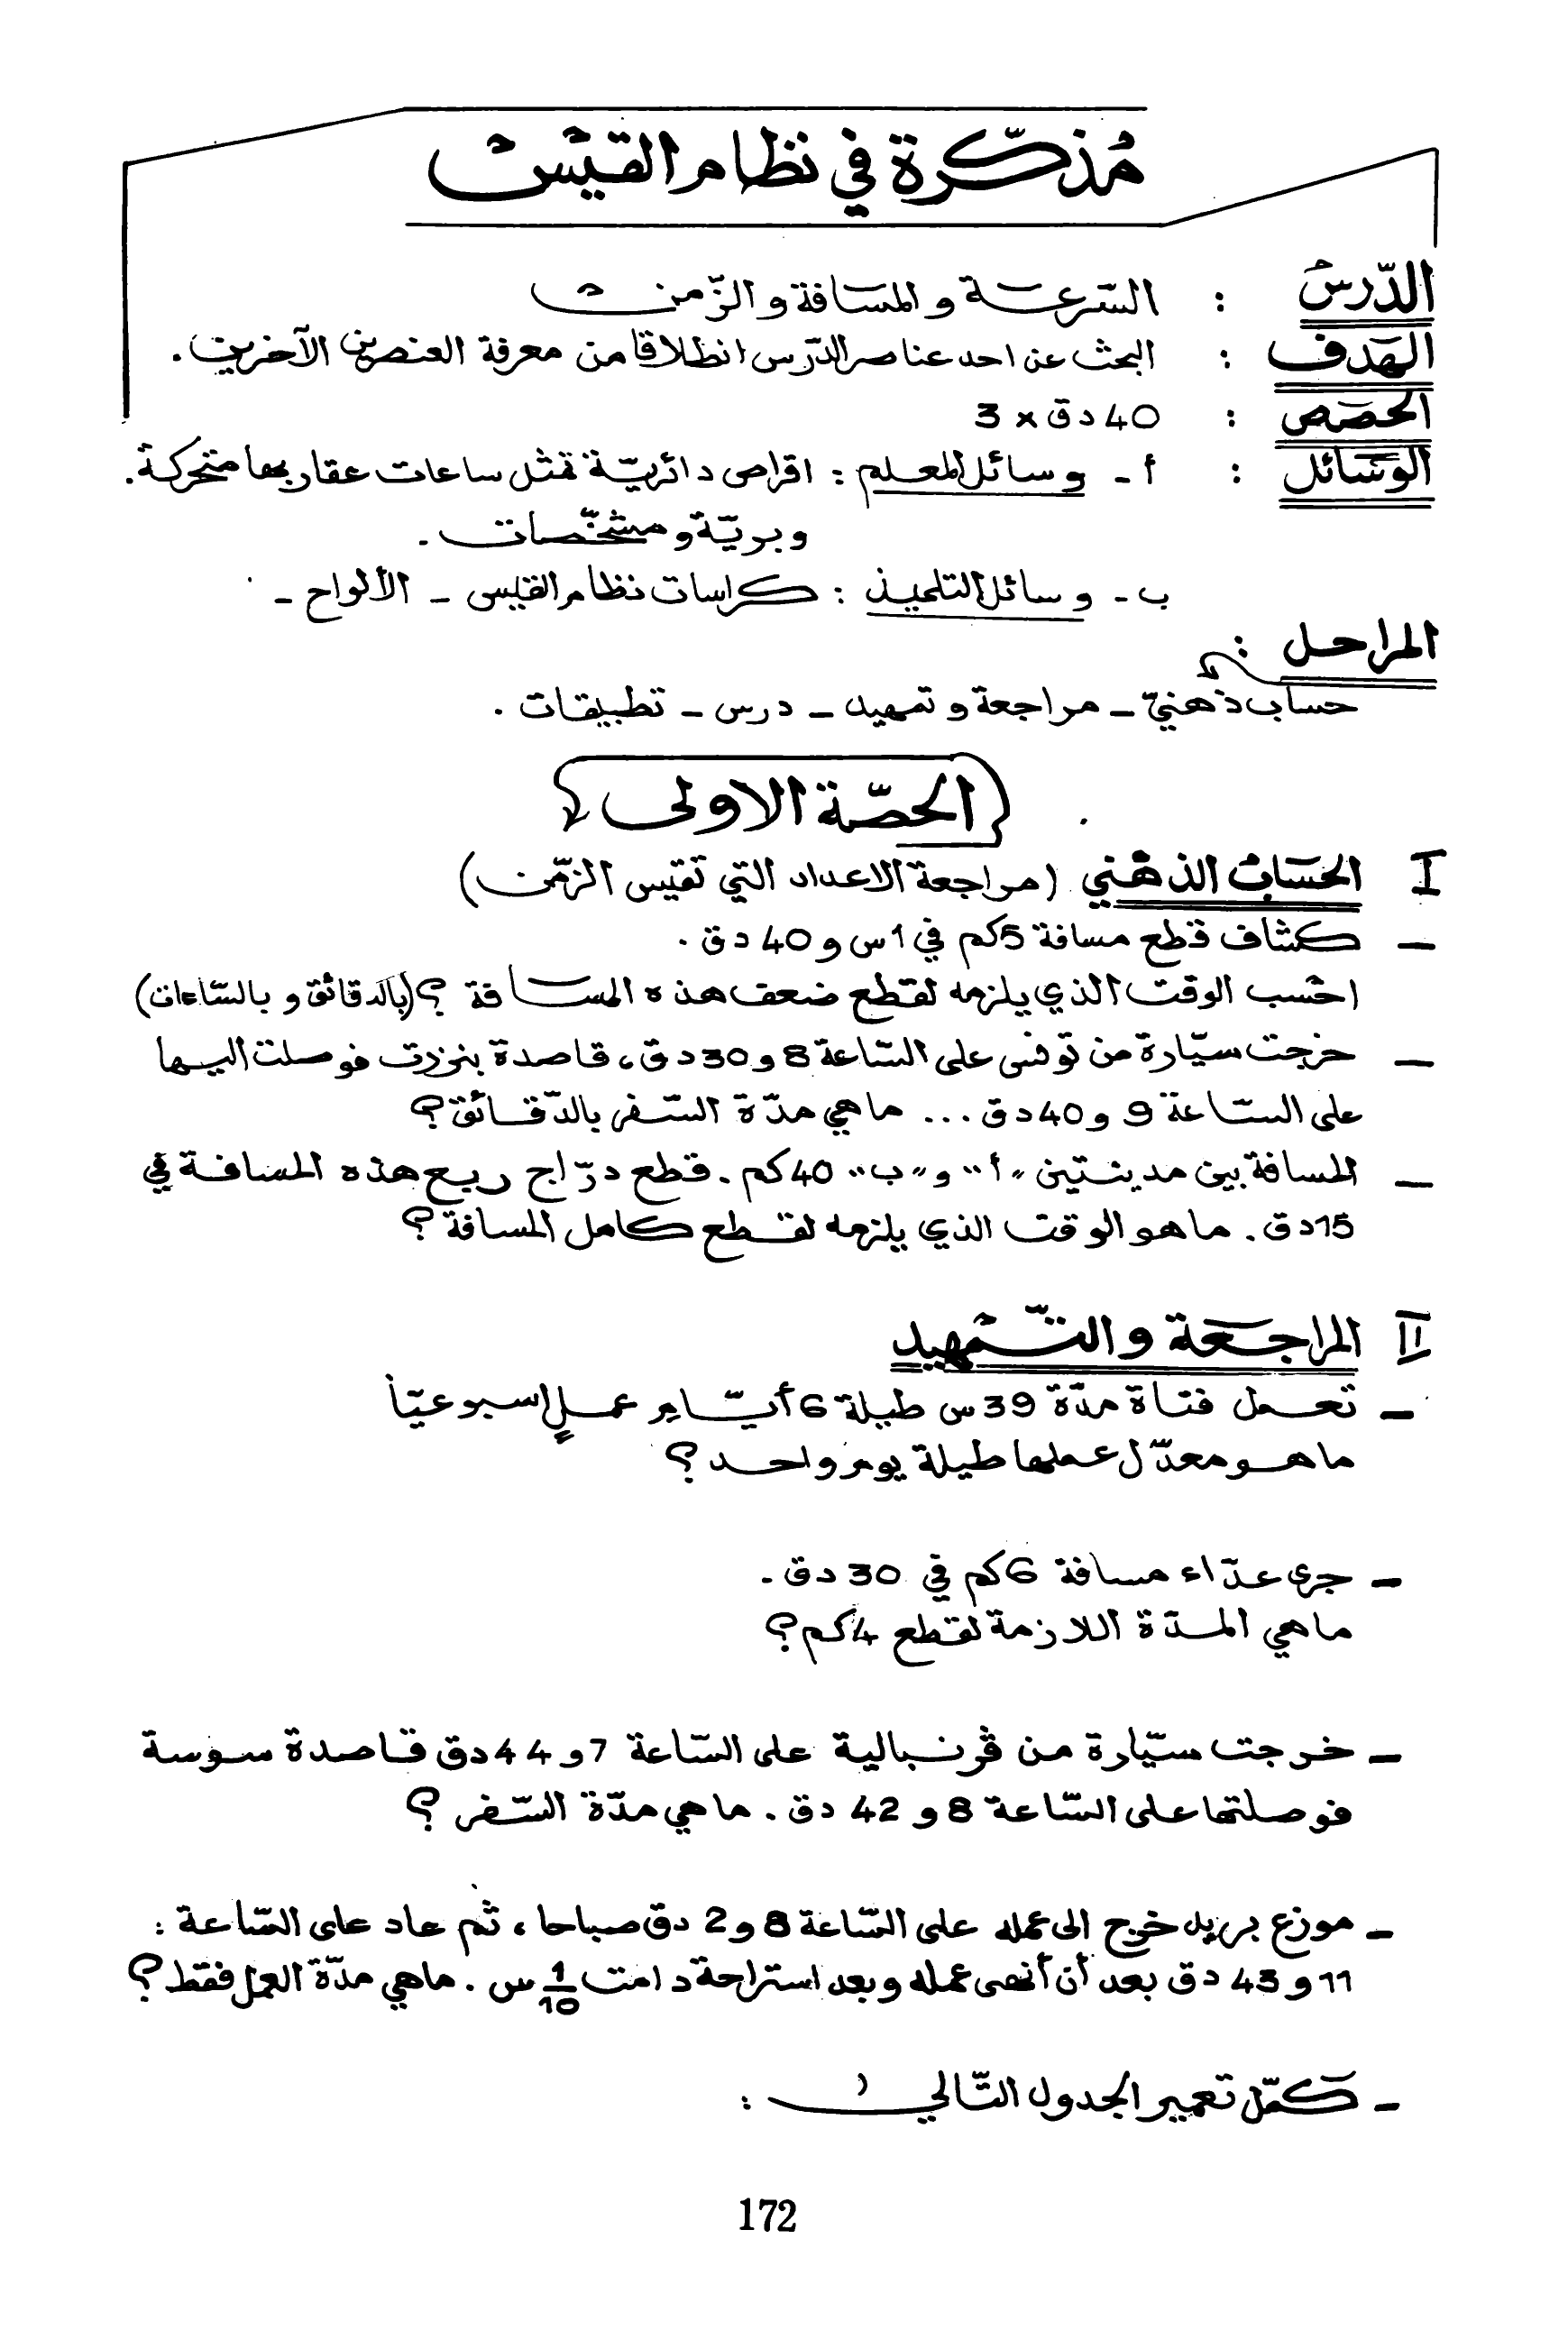 مُذكّرة في نظام القيس
الدّرس : السّرعة والمسَافة والزّمن
الهَدف : البحث عن احد عناصر الدّرس انطلاقا من معرفة العنصرين الآخرين.
الحصَص : 40 دق x 3
الوسَائل : أ - وسائل المعلم : اقراص دائريّة تمثل ساعات عقاربها متحركة.
وبريّة ومشخّصات.
ب - وسائل التلميذ : كراسات نظام القيس - الألواح -
المراحل :
حساب ذهنيّ - مراجعة وتمهيد - درس - تطبيقات .
الحصّة الاولى
I الحسَاب الذهني (مراجعة الاعداد التي تقيس الزمّن)
- كشاف قطع مسافة 5كم في 1س و 40 دق .
احسب الوقت الذي يلزمه لقطع ضعف هذه المسافة ؟ (بالدقائق وبالسّاعات)
- خرجت سيّارة من تونس على السّاعة 8 و 30 دق، قاصدة بنزرت فوصلت اليها
على السّاعة 9 و 40 دق ... ما هي مدّة السّفر بالدّقائق؟
- المسافة بين مدينتين "أ" و "ب" 40 كم . قطع درّاج ربع هذه المسافة في
15 دق . ما هو الوقت الذي يلزمه لقطع كامل المسافة ؟
II المراجَعة والتّمهيد
- تعمل فتاة مدّة 39 س طيلة 6 أيّام عملٍ اسبوعيّا
ما هو معدّل عملها طيلة يوم واحد ؟
- جرى عدّاء مسافة 6 كم في 30 دق -
ما هي المدّة اللازمة لقطع 4 كم ؟
- خرجت سيّارة من ڤرنبالية على السّاعة 7 و 44 دق قاصدة سوسة
فوصلتها على السّاعة 8 و 42 دق . ما هي مدّة السّفر ؟
- موزع بريد خرج الى عمله على السّاعة 8 و 2 دق صباحا ، ثم عاد على السّاعة :
11 و 43 دق بعد أن أنهى عمله وبعد استراحة دامت 1/10 س . ما هي مدّة العمل فقط ؟
- كمّل تعمير الجدول التّالي :
172